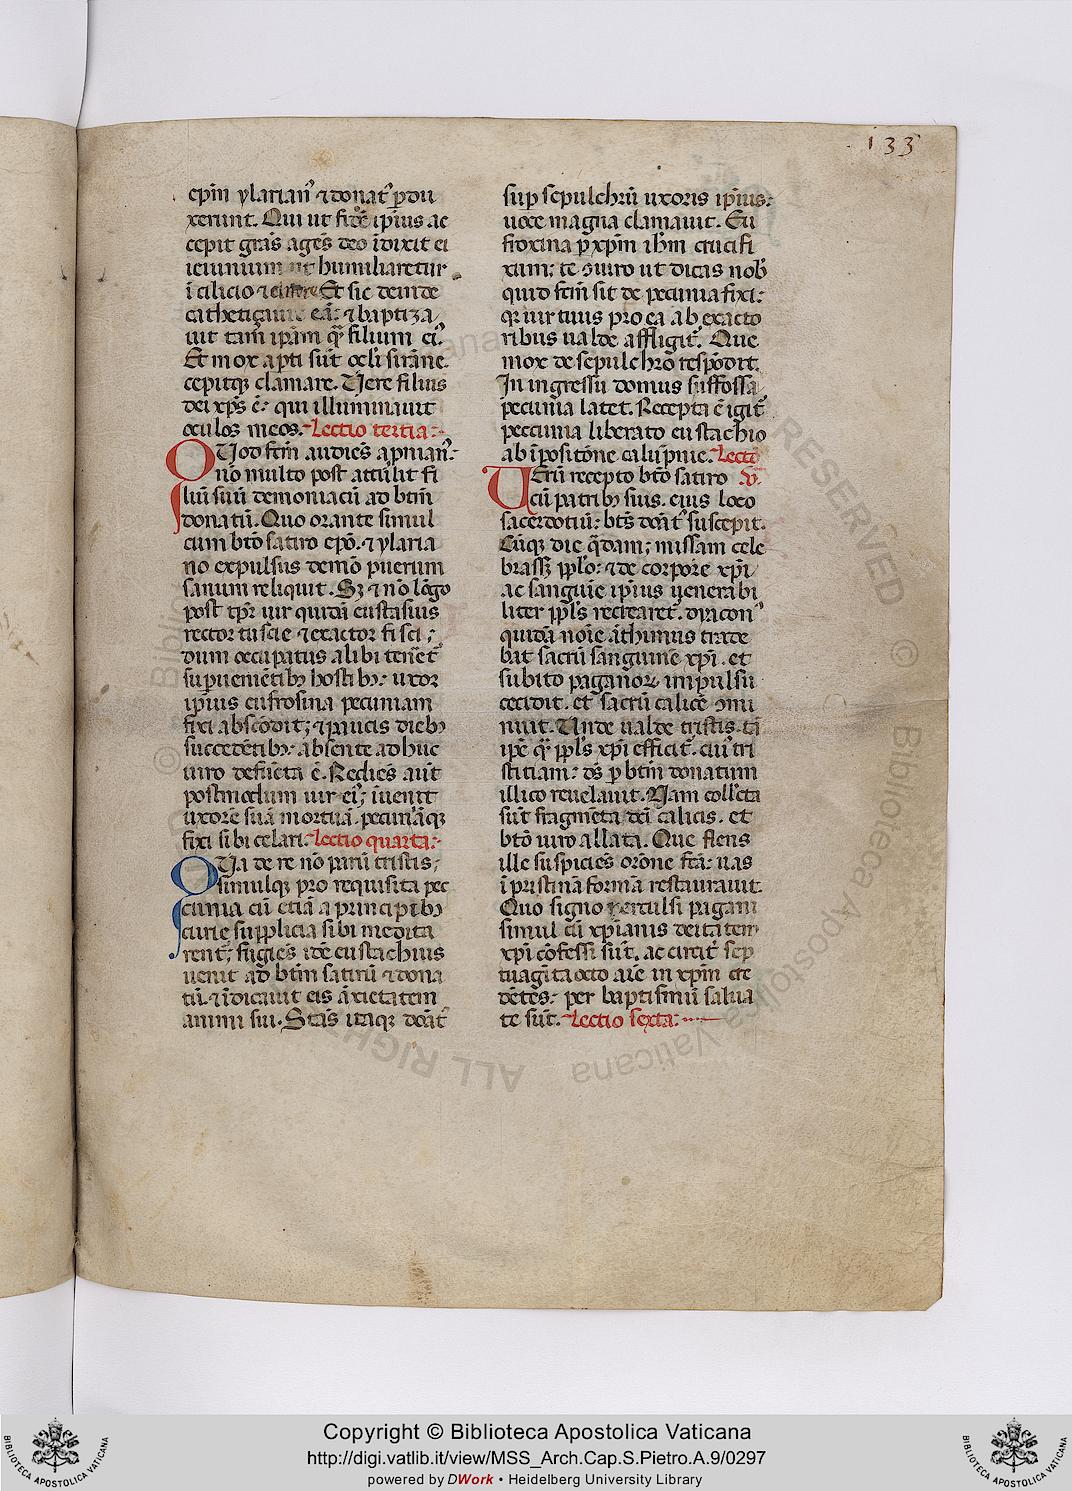 133
ep̄m ylarian᾽ ⁊ donat᾽ ꝑdu
xerunt. Qui ut fidē ip̄ius ac
cepit grās agēs deo īdixit ei
ieiunium ut humiliaretur
ī cilicio ⁊ Et sic deinde
cathetiçauit eā: ⁊ baptiza
uit tam ip̄am qͣꝫ filium ei᾽.
Et mox apti sūt ocl̓i sirāne.
cepitqꝫ clamare. Uere filius
dei xp̄s ē: qui illuminauit
oculos meos. Lectio tertia:
QUod fc̄m audiēs apnian᾽:
nō multo post attulit fi
liū suū demoniacū ad btm̄
donatū. Quo orante simul
cum btō satiro ep̄o. ⁊ ylaria
no expulsus demō puerum
sanum reliquit. Sꝫ ⁊ nō lōgo
post tp̄r uir quidā eustasius
rector tuscie ⁊ exactor fisci;
dum occupatus alibi tenet᷑
suꝑuenientibꝫ hostibꝫ: uxor
ip̄ius eufrosina pecuniam
fixi abscōdit; ⁊ paucis diebꝫ
succedētibꝫ: absente adhuc
uiro defūcta ē. Rediēs aūt
postmodum uir ei᾽; īuenit
uxorē suā mortuā. pecuniāqꝫ
fixi sibi celari. Lectio quarta:
QUa de re nō parū tristis;
simulqꝫ pro requisita pec
cunia cū etiā a principibꝫ
curie supplicia sibi medita
rent᷑; fugiēs idē eustachius
uenit ad btm̄ satirū ⁊ dona
tū. ⁊ īdicauit eis āxietatem
animi sui. Stās itaqꝫ donat᾽
suꝑ sepulchrū uxoris ip̄ius:
uoce magna clamauit. Eu
froxina ꝑ xp̄m ih̄m crucifi
xum: te ɔiuro ut dicas nob̓
quid fc̄m sit de pecunia fixi:
qꝛ uir tuus pro ea ab exacto
ribus ualde affligit᷑. Que
mox de sepulchro respōdit.
In ingressu domus suffossa
pecunia latet. Recepta ē igit᷑
peccunia liberato eustachio
ab īpositōne calūpnie. Lectō
UErū recepto btō satiro v̄.
cū patribꝫ suis. eius loco
sacerdotiū: bt̄s donat᾽ suscepit.
Cūqꝫ die qͣdam; missam cele
brasꝫ pp̄lo: ⁊ de corpore xp̄i
ac sanguīe ip̄ius uenerabi
liter pp̄ls recrearet᷑. dyacon᾽
quidā noīe āthimus trade
bat sacrū sanguinē xp̄i. et
subito paganoꝝ impulsu
cecidit. et sacrū calicē ɔmi
nuit. Unde ualde tristis. tā
ip̄e qͣꝫ pp̄ls xp̄i efficit᷑. cui᾽ tri
stitiam: ds̄ ꝑ btm̄ donatum
illico reuelauit. Nam collecta
sūt fragmēta dc̄i calicis. et
btō uiro allata. Que flens
ille suspiciēs orōne fc̄a: uas
ī pristinā formā restaurauit.
Quo signo perculsi pagani
simul cū xp̄ianis deitatem
xp̄i cōfessi sūt. ac circit᷑ sep
tuagīta octo aīe in xp̄m cre
dētēs: per baptismū salua
te sūt. Lectio sexta:
Copyright © Biblioteca Apostolica Vaticana
http://digi.vatlib.it/view/MSS_Arch.Cap.S.Pietro.A.9/0297
powered by DWork • Heidelberg University Library
BIBLIOTECA APOSTOLICA VATICANA
BIBLIOTECA APOSTOLICA VATICANA
© Biblioteca Apostolica Vaticana ALL RIGHTS RESERVED